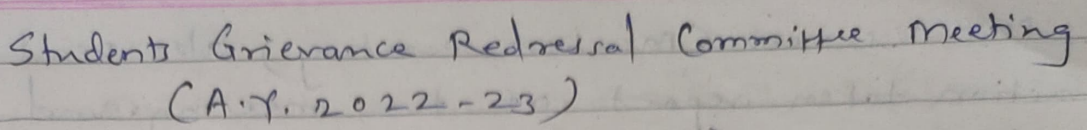 Students Grievance Redressal Committee meeting
(A.Y. 2022-23)